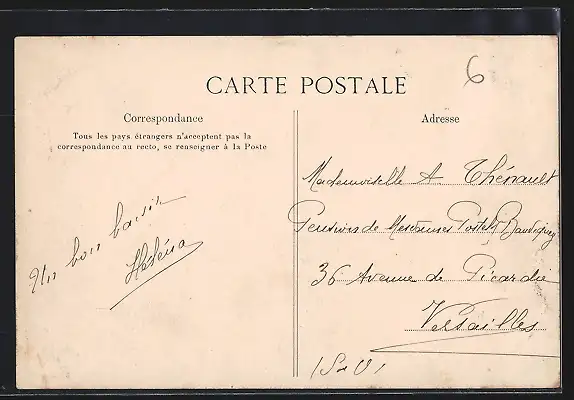 6
CARTE POSTALE
Correspondance
Tous les pays étrangers n'acceptent pas la
correspondance au recto, se renseigner à la Poste
Un bon baiser
Héléna
Adresse
Mademoiselle A. Thénault
de Mesdames
36 Avenue de Picardie
Versailles